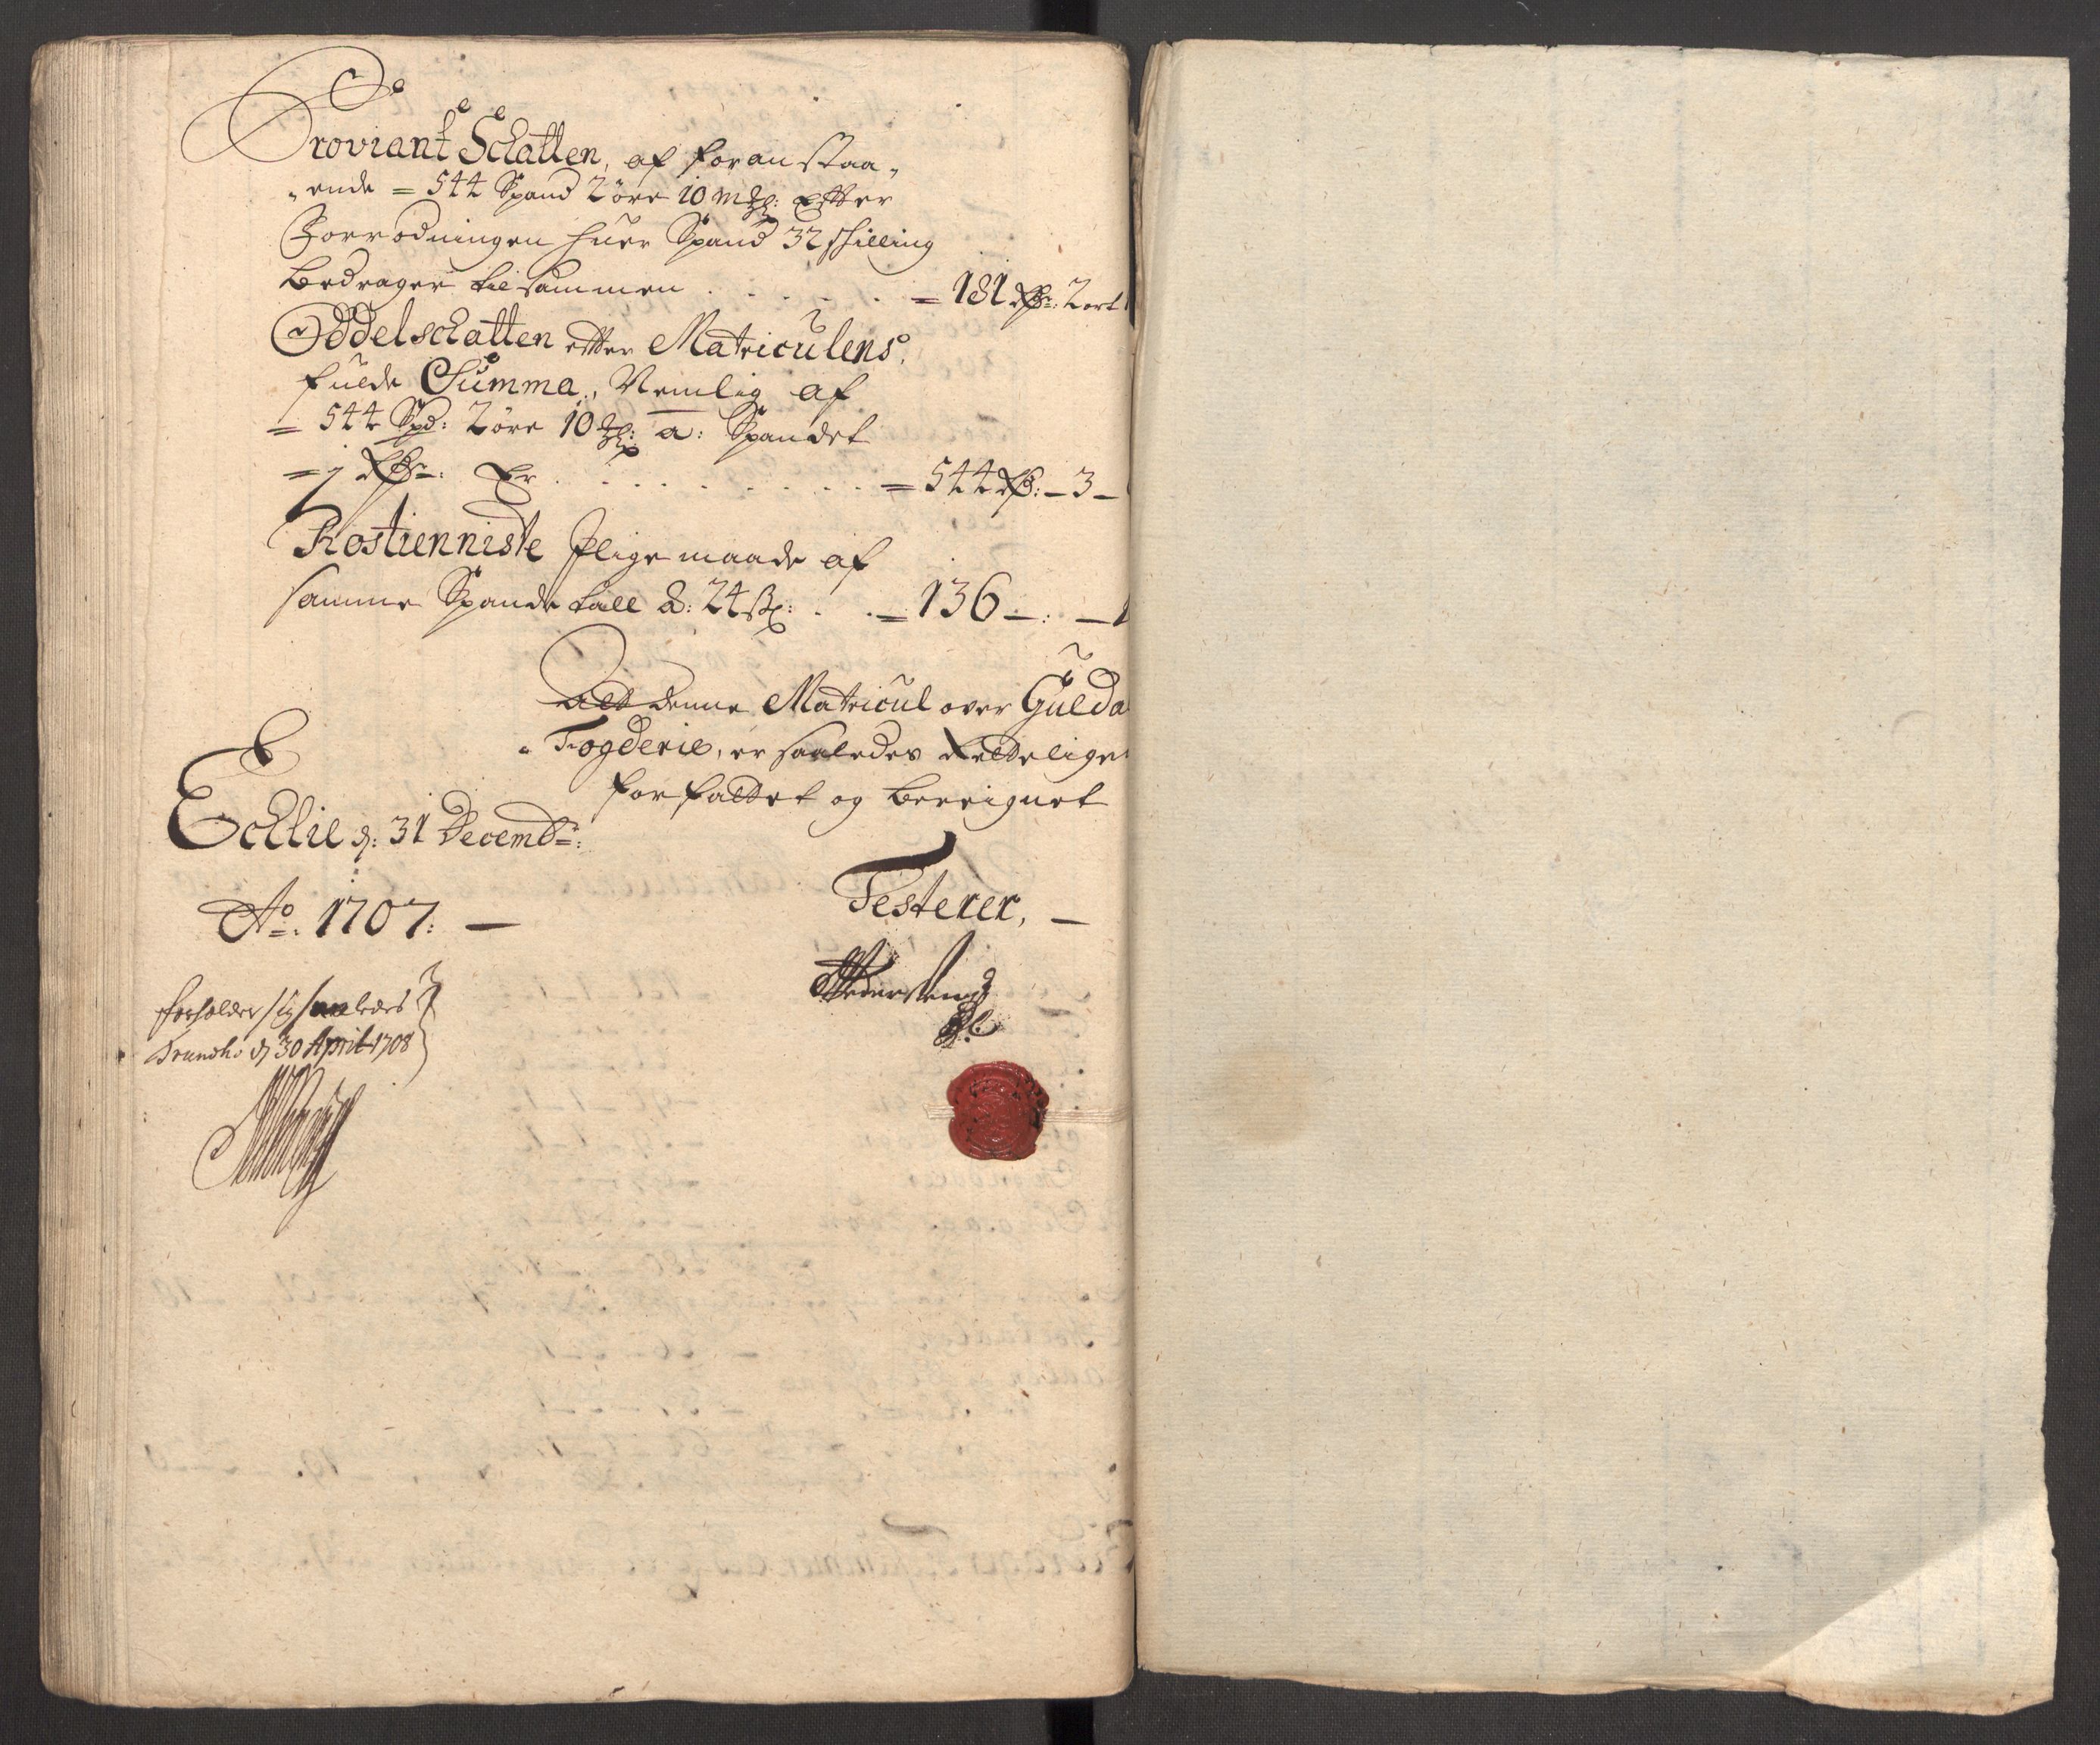 Proviant Schatten, af foranstaa„
„ende = 544 Spand 2 öre 10 mkl: Efter
Forrodningen huer Spand 32 shilling
bedrager tilsammen . . . . . = 181 Rdr: 2 ort
Oddelschatten efter Matriculens
fulde Summa, Nemlig af
= 544 Spd: 2 öre 10 mkl: a: Spandet
= j Rdr: Er . . . . . . . . . = 544 Rdr: – 3 –
Rostienniste Jlige maade af
samme Spande tall a: 24 sk: . . = 136 – : –
Att denne Matricul over Gulda
Fogderie, er saaledes Retteligen
forfattet og bereignet
Echlie d: 31 Decembr:
Ao: 1707: —
Testerer, —
forholder sig saaledes
Trundhr d 30 April 1708